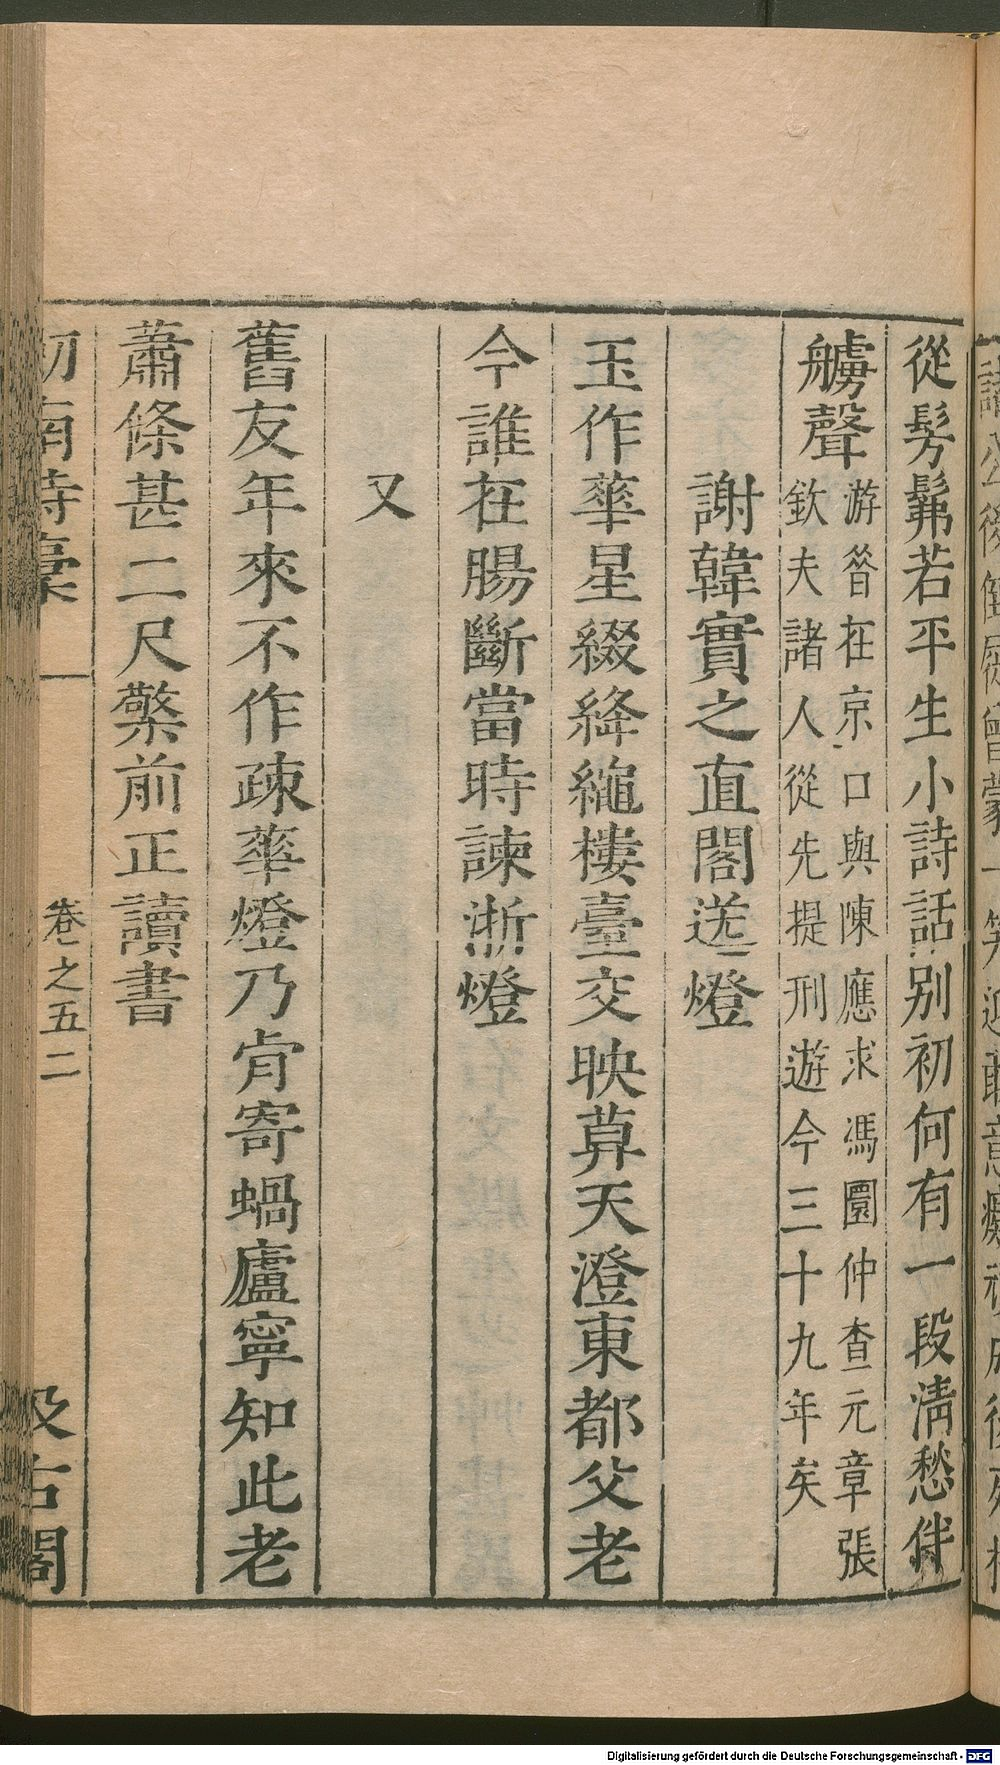 從髣髴若平生小詩話別初何有一段淸愁伴
艣聲
游晉在京口與陳應求馮圜仲查元章張
欽夫諸人從先提刑遊今三十九年矣
謝韓實之直閣送燈
玉作華星綴絳繩樓臺交映莫天澄東都父老
今誰在腸斷當時諫浙燈
又
舊友年來不作疎華燈乃肯寄蝸廬寧知此老
蕭條甚二尺檠前正讀書
卷之五 二
汲古閣
Digitalisierung gefördert durch die Deutsche Forschungsgemeinschaft - DFG